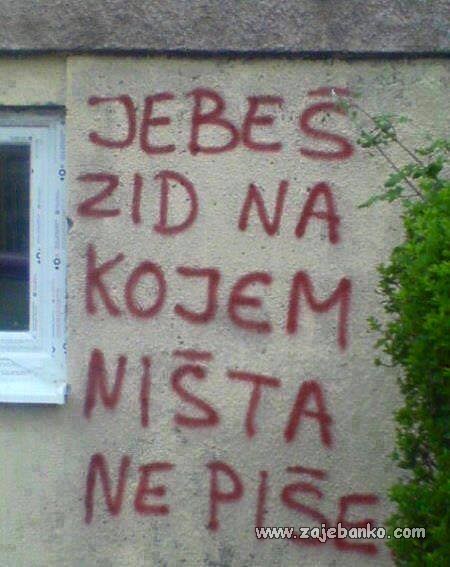 JEBEŠ
ZID NA
KOJEM
NIŠTA
NE PIŠE
www.zajebanko.com